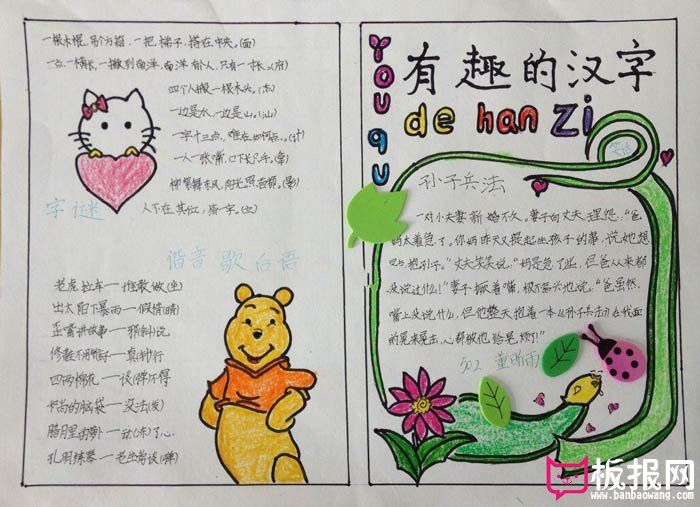 一根木棍，吊个方箱，一把梯子，搭在中央。(面)
一点一横长，一撇到南洋，南洋有个人，只有一寸长。(府)
四个人搬一根木头。(杰)
一边是水，一边是山。(汕)
一字十三点，难在如何点。(汁)
一人一张嘴，口下长只手。(拿)
人下在其位，猜一字。(立)
字谜
谐音歇后语
老虎拉车——谁敢做(坐)
出太阳下暴雨——假情(晴)
歪嘴讲故事——邪(斜)说
四两棉花——谈(弹)不得
和尚的脑袋——没法(发)
腊月里的萝卜——动(冻)了心
孔明练琴——老生常谈(弹)
You qu
有趣的汉字
de han Zi
笑话
孙子兵法
一对小夫妻新婚不久。妻子向丈夫埋怨："爸
妈太着急了。你妈昨天又提起生孩子的事，说她想
早抱孙子。"丈夫笑笑说："妈是急了些，但爸从来都
没说过什么！"妻子撅着嘴，极不高兴地说："爸虽然
嘴上没说什么，但他整天抱着一本《孙子兵法》在我面
前晃来晃去，心都被他给晃烦了！"
502
板报网
www.banbaowang.com